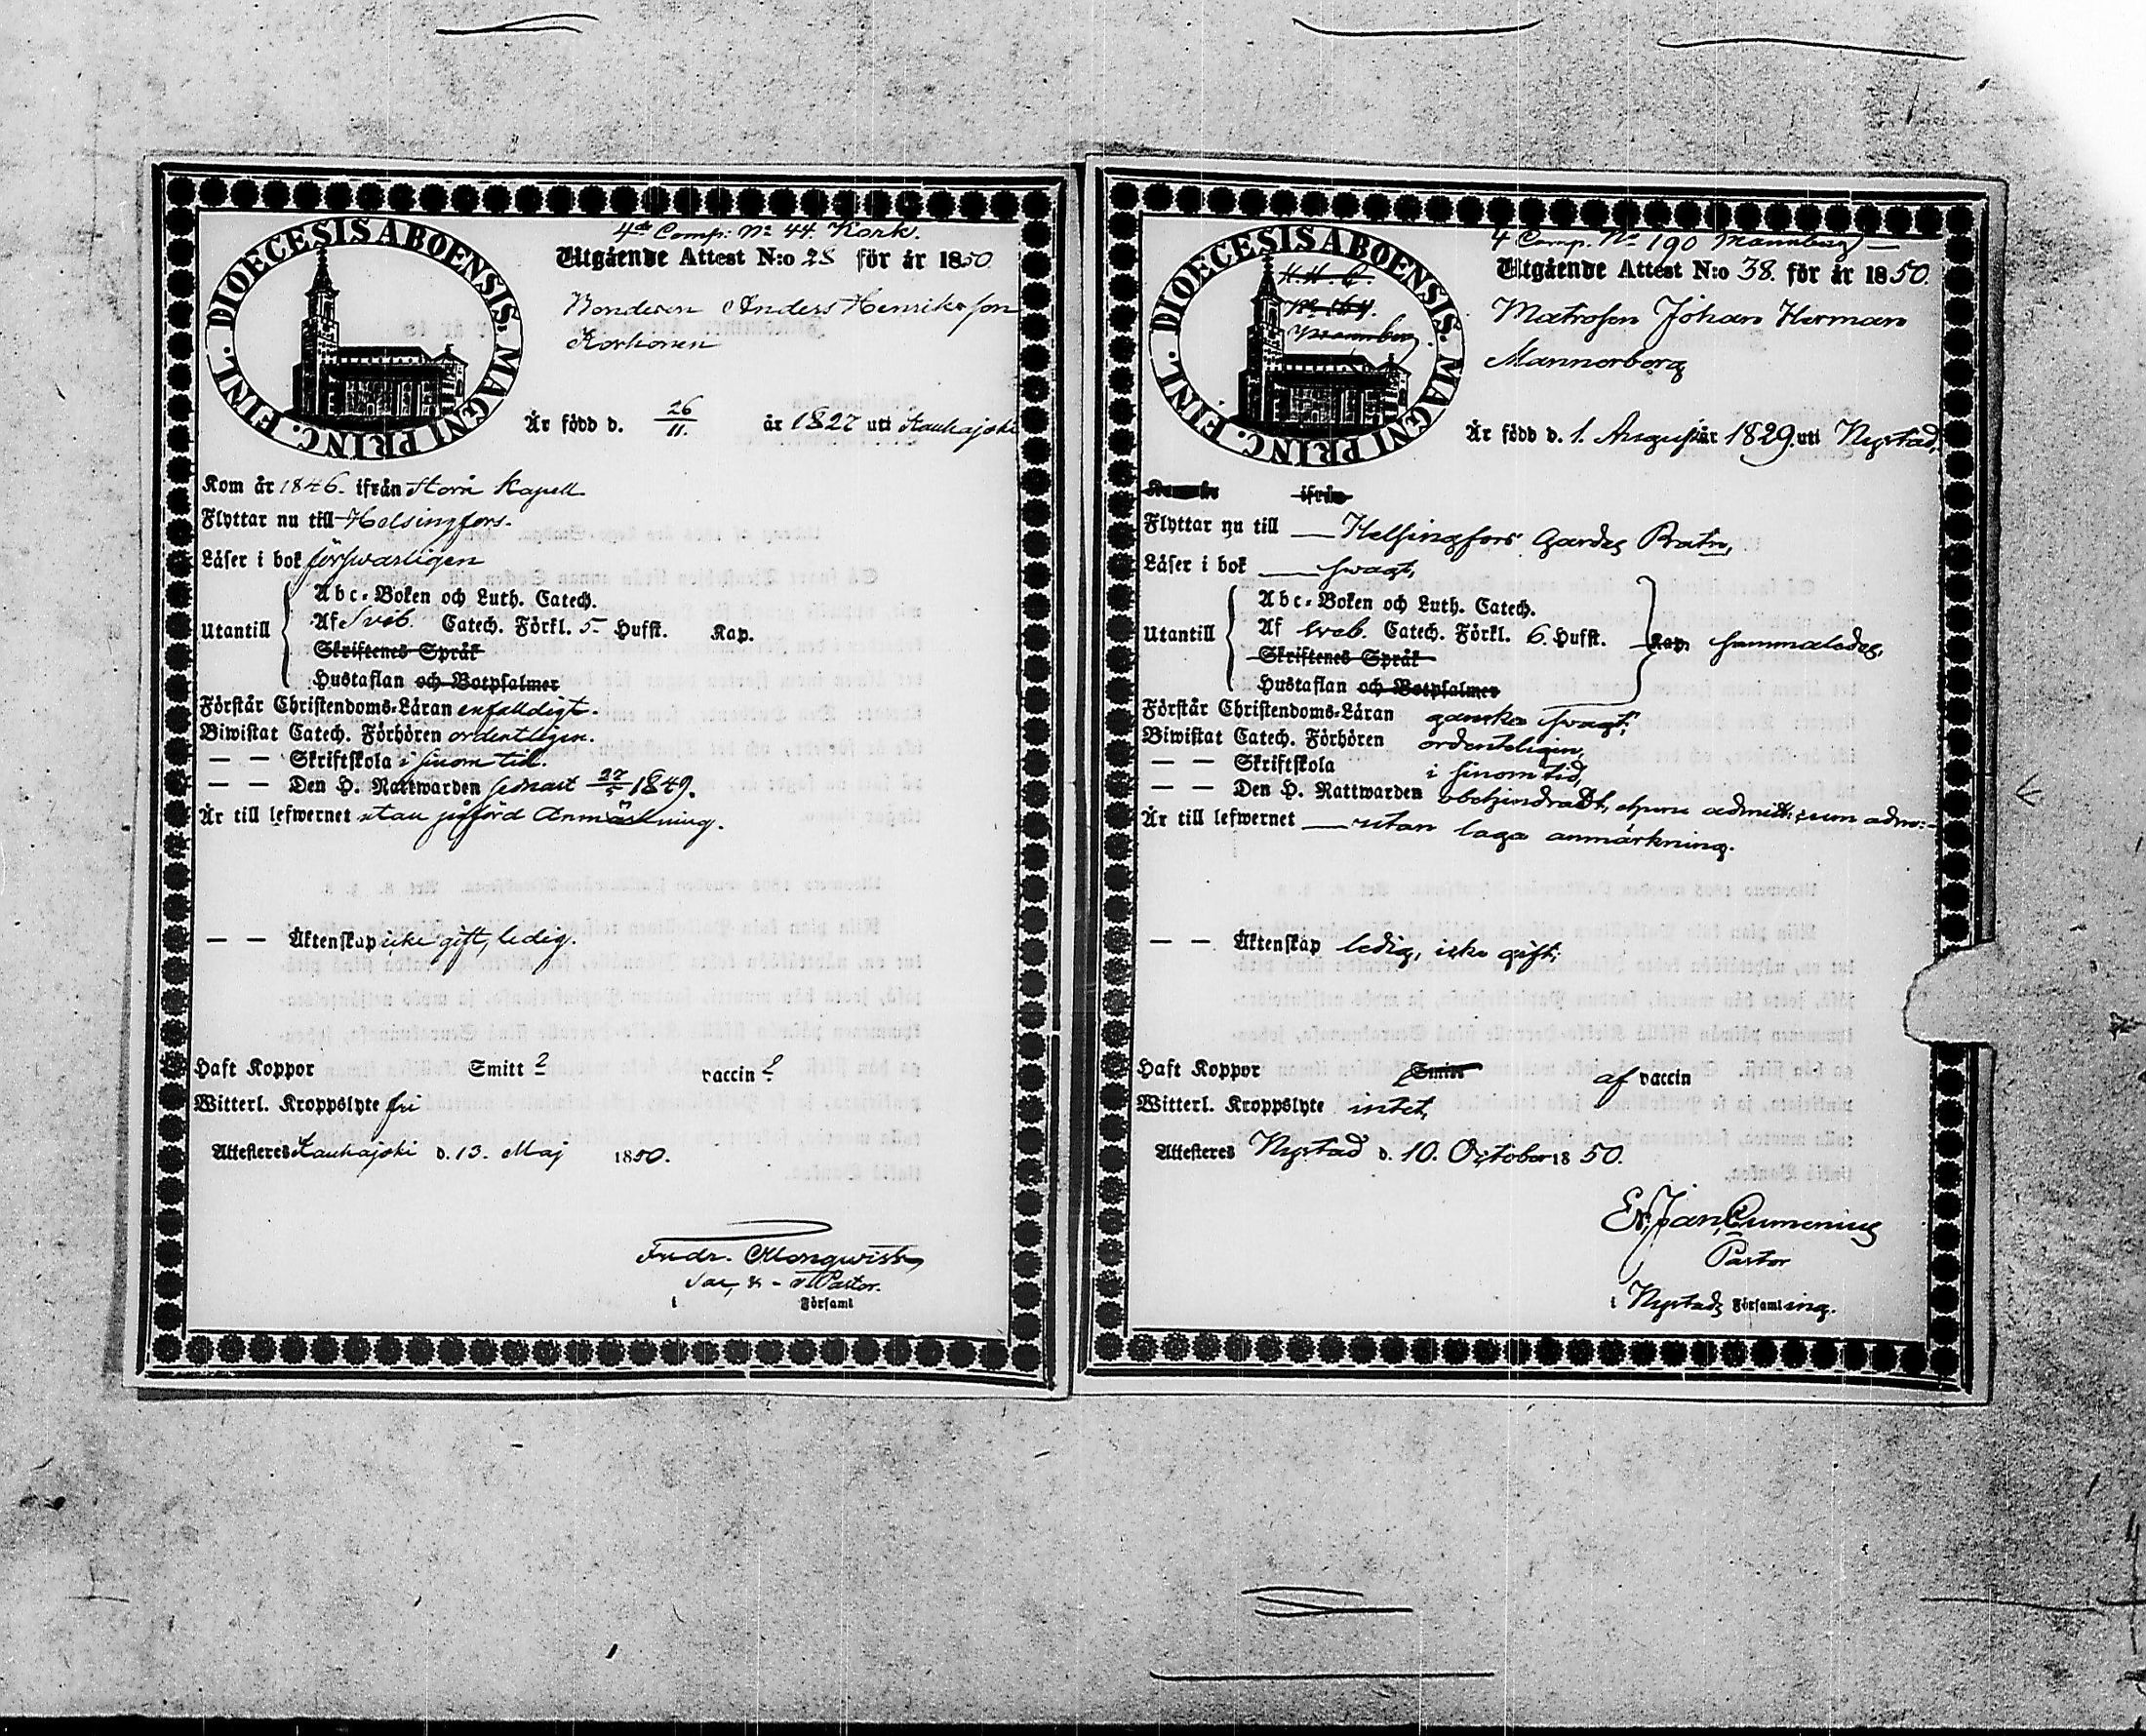 4de Comp: No 44. Kork.
DIOECESIS ABOENSIS. MAGNI PRINC. FINL.
Utgående Attest N:o 28 för år 1850
Bonderen Anders Henriksson
Korhonen
Är född d. 26/11. år 1827 uti Kauhajoki
Kom år 1846. ifrån Storå Kapell
Flyttar nu till Helsingfors.
Läser i bok förswarligen
Utantill
Abc-Boken och Luth. Catech.
Af Sveb. Catech. Förkl. 5 Hufst. Kap.
Skriftenes Språk
Hustaflan och Botpsalmer
Förstår Christendoms-Läran enfaldigt.
Biwistat Catech. Förhören ordentligen.
— — Skriftskola i sinom tid.
— — Den H. Nattwarden senast 27/5 1849.
Är till lefwernet utan jäförd Anmärkning.
— — Äktenskap icke gift, ledig.
Haft Koppor Smitt ? vaccin ?
Witterl. Kroppslyte fri
Attesteres Kauhajoki d. 13. Maj 1850.
Fredr. Monqwist
v Pastor.
i Församl
4 Comp. No 190 Mannberg —
DIOECESIS ABOENSIS. MAGNI PRINC. FINL.
No 164.
Utgående Attest N:o 38. för år 1850.
Matrosen Johan Herman
Mannerberg
Är född d. 1. Augusti år 1829. uti Nystad,
ifrån
Flyttar nu till — Helsingfors Gardes Batn,
Läser i bok — swagt,
Utantill
Abc-Boken och Luth. Catech.
Af Sveb. Catech. Förkl. 6. Hufst. Kap. sammaledes,
Skriftenes Språk
Hustaflan och Botpsalmer
Förstår Christendoms-Läran ganska swagt,
Biwistat Catech. Förhören ordenteligen,
— — Skriftskola i sinom tid,
— — Den H. Nattwarden obehindradt,
Är till lefwernet — utan laga anmärkning.
— — Äktenskap ledig, icke gift.
Haft Koppor Smitt af vaccin
Witterl. Kroppslyte intet,
Attesteres Nystad d. 10. October 1850.
Cumenius
Pastor
i Nystads Församling.